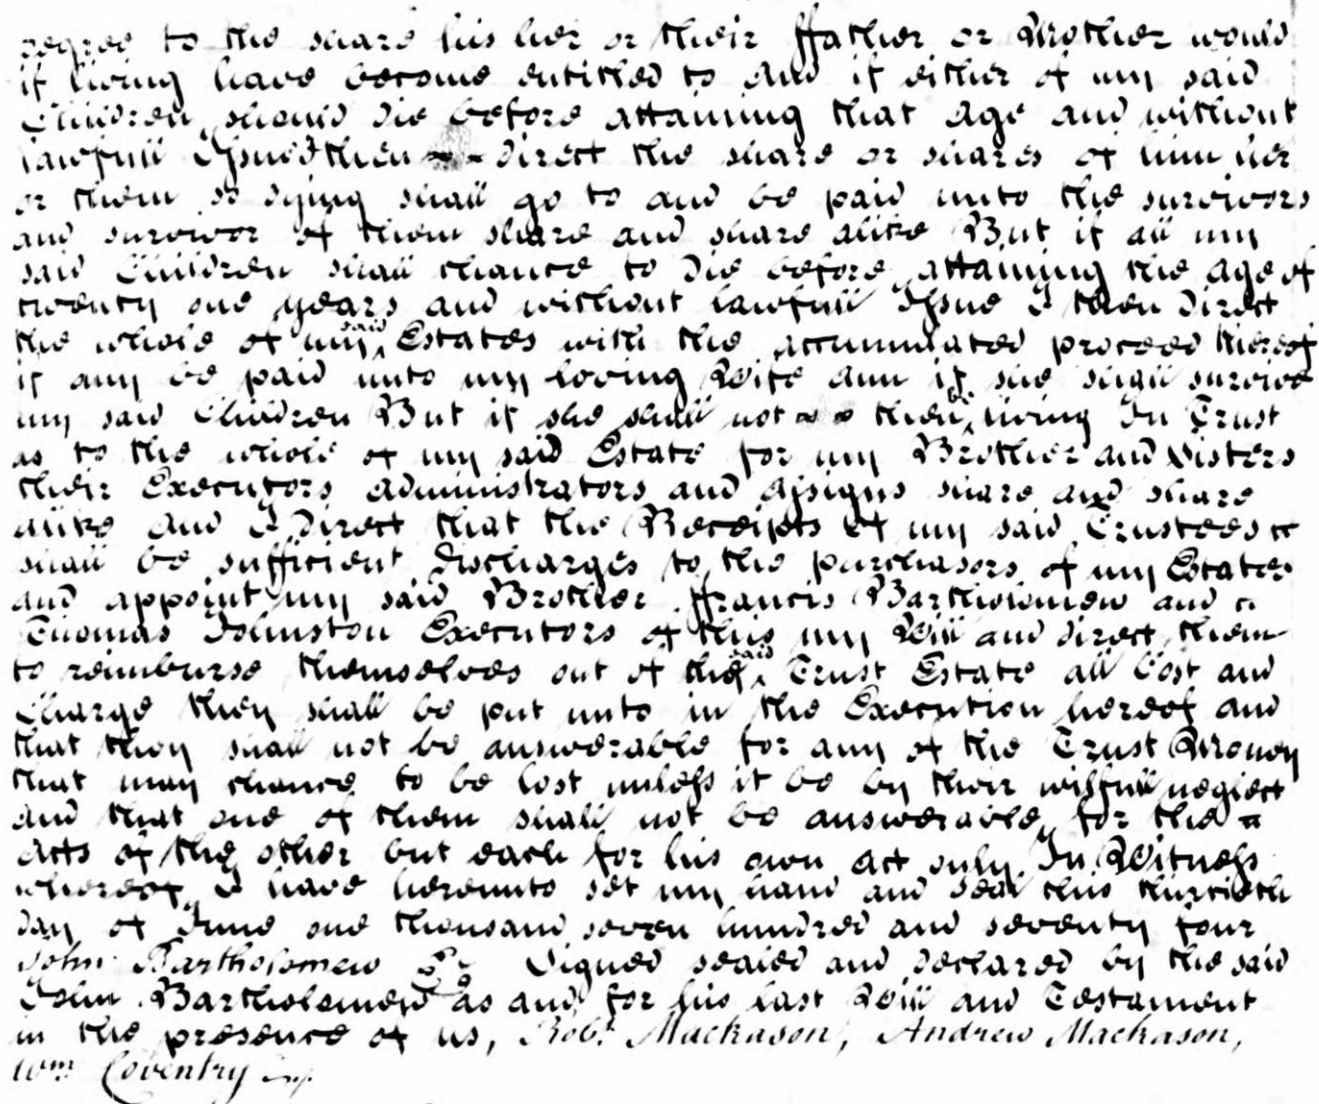 degree to the share his her or their ffather or Mother would
if living have become entitled to And if either of my said
Children should die before attaining that Age and without
lawfull Issue then direct the share or shares of him her
or them so dying shall go to and be paid unto the survivors
and survivor of them share and share alike But if all my
said Children shall chance to die before attaining the age of
twenty one years and without lawfull Issue I then direct
the whole of my said Estates with the accumulated proceed thereof
if any be paid unto my loving Wife Ann if she shall survive
my said Children But if she shall not then be living In Trust
as to the whole of my said Estate for my Brother and Sisters
their Executors Administrators and Assigns share and share
alike And I Direct that the Receipts of my said Trustees
shall be sufficient Discharges to the purchasors of my Estates
and appoint my said Brother ffrancis Bartholomew and
Thomas Johnston Executors of this my Will and direct them
to reimburse themselves out of the said Trust Estate all Cost and
Charge they shall be put unto in the Execution hereof and
that they shall not be answerable for any of the Trust Money
that may chance to be lost unless it be by their wilfull neglect
and that one of them shall not be answerable for the
Acts of the other but each for his own act only In Witness
whereof I have hereunto set my hand and seal this thirtieth
day of June one thousand seven hundred and seventy four
John Bartholomew Signed sealed and declared by the said
John Bartholomew as and for his last Will and Testament
in the presence of us, Robt. Mackason, Andrew Mackason,
Wm Coventry